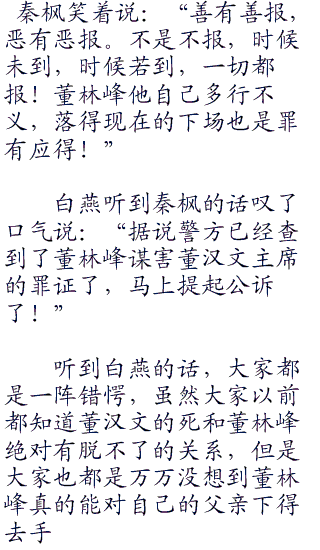 秦枫笑着说：“善有善报，
恶有恶报。不是不报，时候
未到，时候若到，一切都
报！董林峰他自己多行不
义，落得现在的下场也是罪
有应得！”
白燕听到秦枫的话叹了
口气说：“据说警方已经查
到了董林峰谋害董汉文主席
的罪证了，马上提起公诉
了！”
听到白燕的话，大家都
是一阵错愕，虽然大家以前
都知道董汉文的死和董林峰
绝对有脱不了的关系，但是
大家也都是万万没想到董林
峰真的能对自己的父亲下得
去手